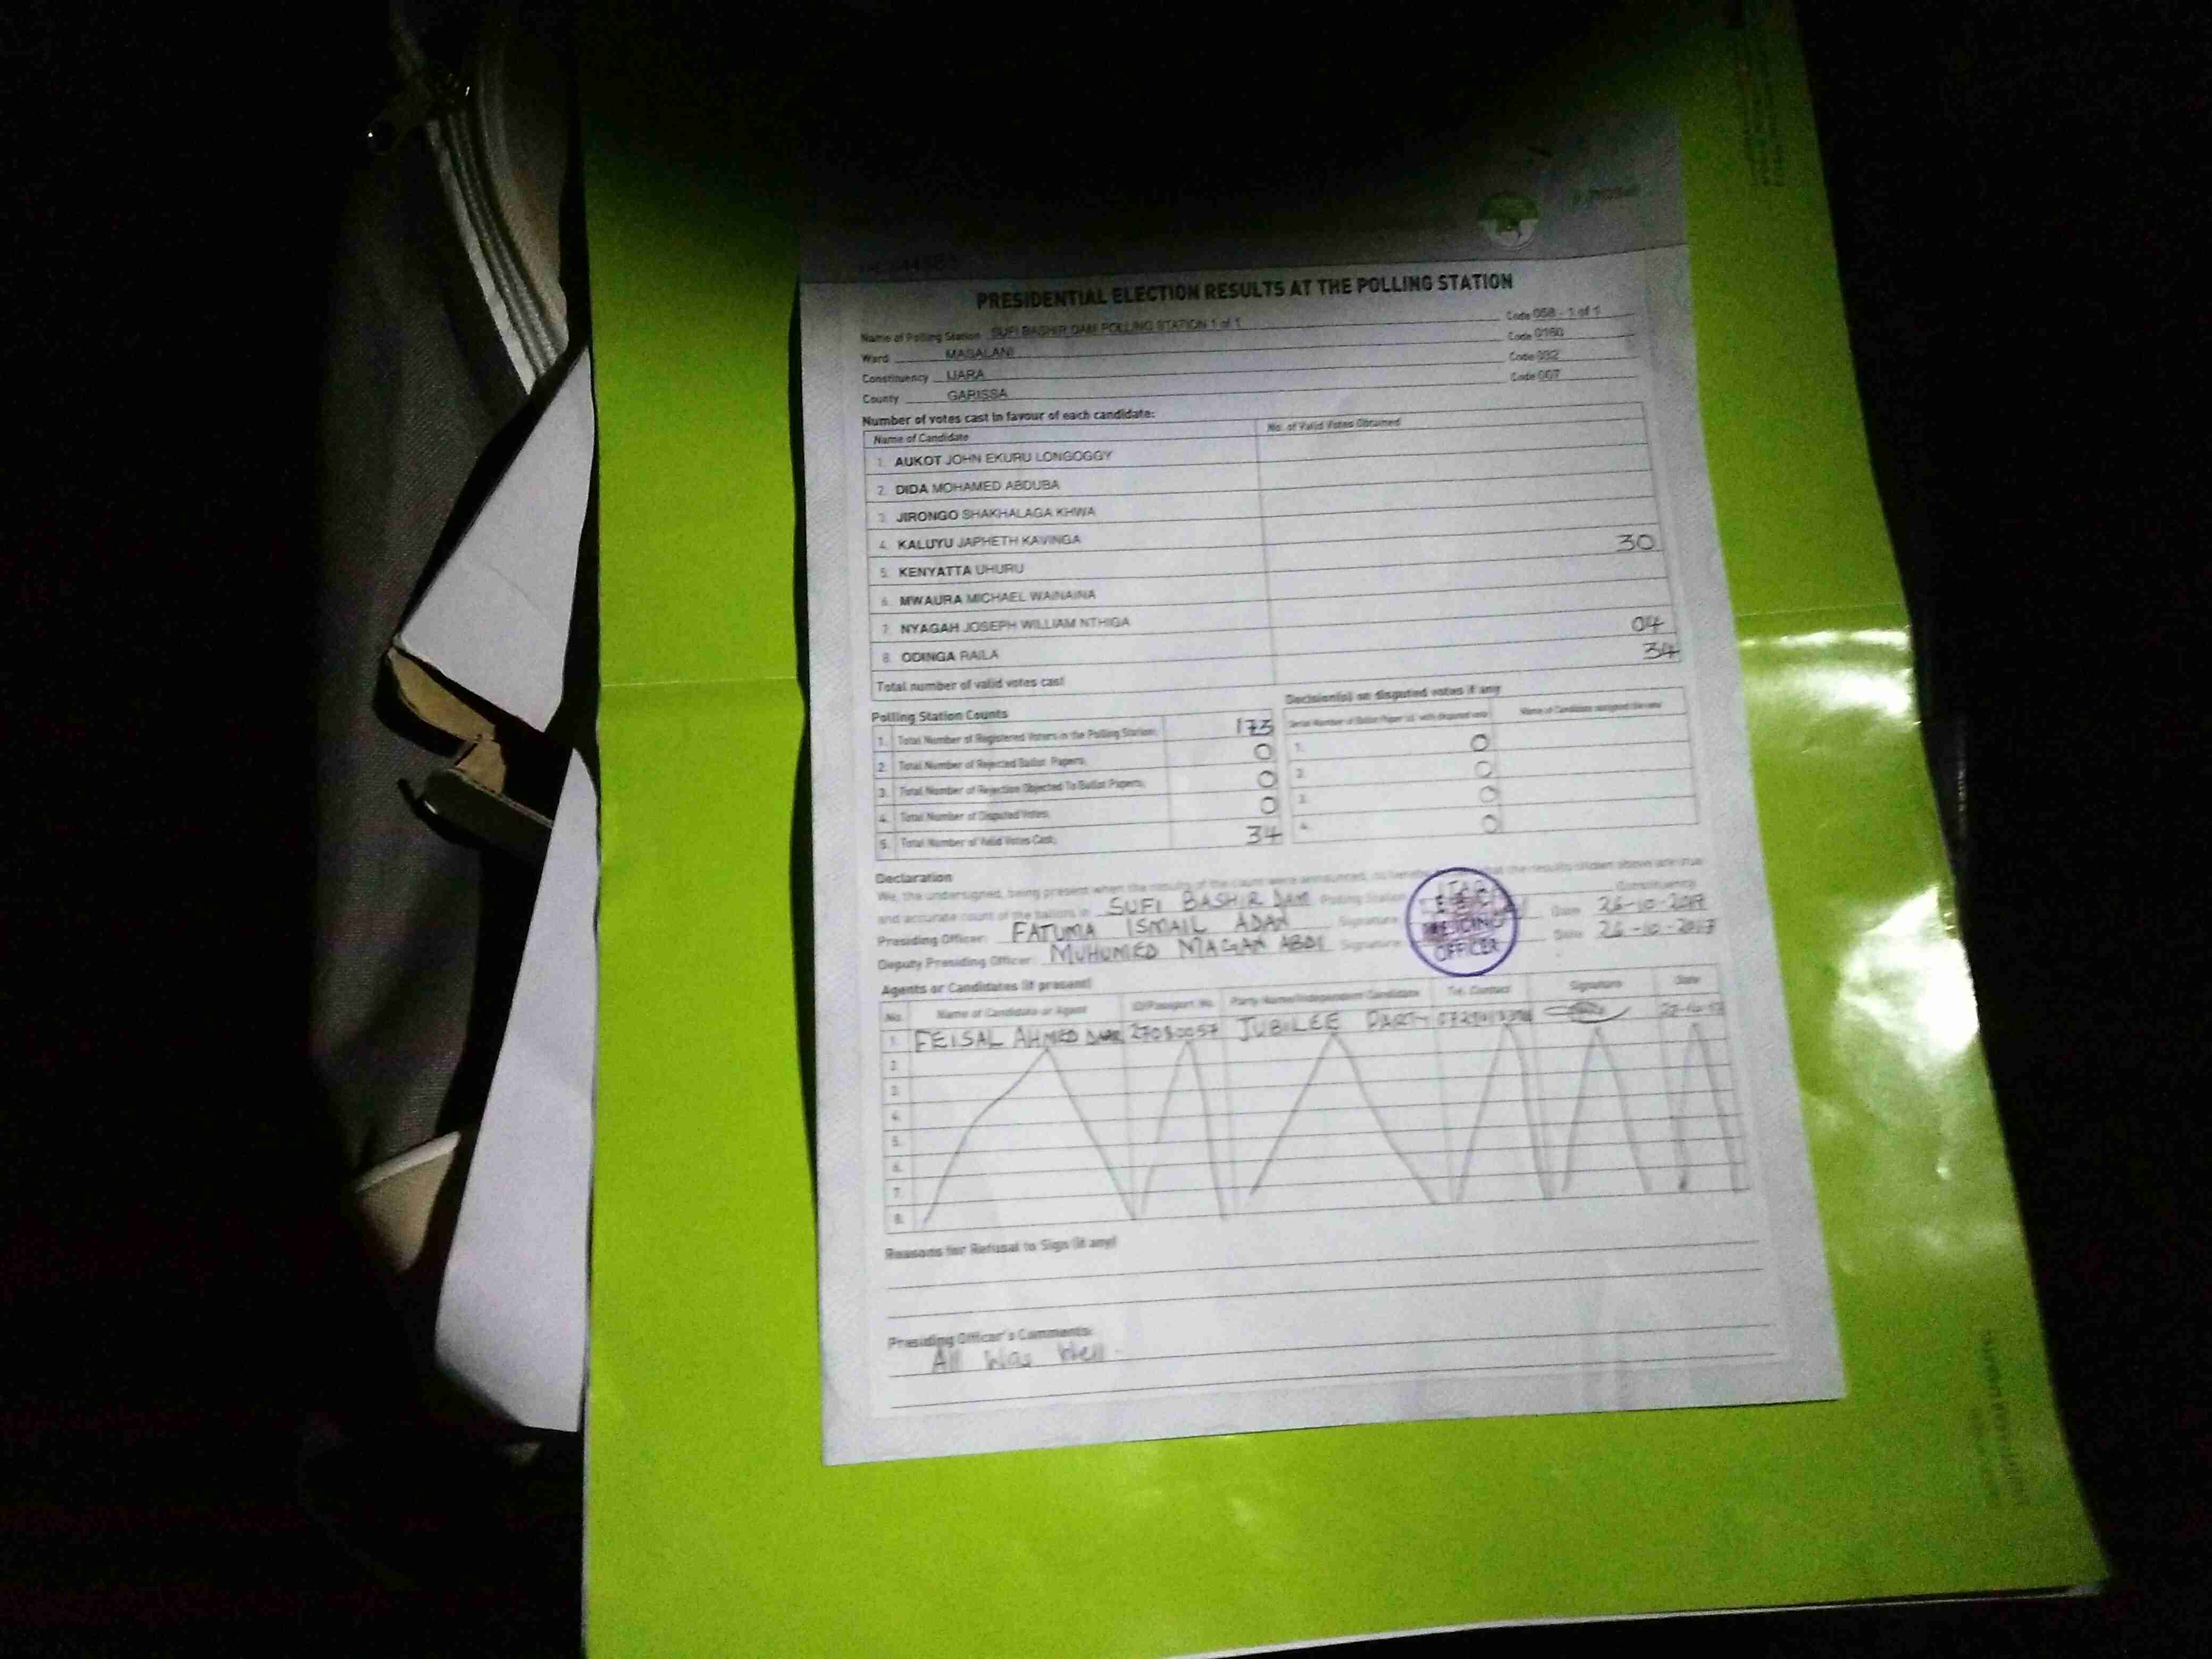 PRESIDENTIAL ELECTION RESULTS AT THE POLLING STATION
Name of Polling Station SUFI BASHIR DAM POLLING STATION 1 of 1 Code 058 - 1 of 1
Ward MASALANI Code 0160
Constituency IJARA Code 032
County GARISSA Code 007
Number of votes cast in favour of each candidate:
Name of Candidate No. of Valid Votes Obtained
1. AUKOT JOHN EKURU LONGOGGY
2. DIDA MOHAMED ABDUBA
3. JIRONGO SHAKHALAGA KHWA
4. KALUYU JAPHETH KAVINGA
5. KENYATTA UHURU 30
6. MWAURA MICHAEL WAINAINA
7. NYAGAH JOSEPH WILLIAM NTHIGA
8. ODINGA RAILA 04
Total number of valid votes cast 34
Polling Station Counts
1. Total Number of Registered Voters in the Polling Station: 173
2. Total Number of Rejected Ballot Papers: 0
3. Total Number of Rejection Objected To Ballot Papers: 0
4. Total Number of Disputed Votes: 0
5. Total Number of Valid Votes Cast: 34
Decision(s) on disputed votes if any
Serial Number of Ballot Paper (s) with disputed vote Name of Candidate assigned the vote
1. 0
2. 0
3. 0
4. 0
Declaration
We, the undersigned, being present when the results of the count were announced, do hereby that the results shown above are true
and accurate count of the ballots in SUFI BASHIR DAM Polling Station Constituency
Presiding Officer: FATUMA ISMAIL ADAN Signature Date 26-10-2017
Deputy Presiding Officer: MUHUMED MAGAN ABDI Signature Date 26-10-2017
OFFICER
Agents or Candidates (if present)
No. Name of Candidate or Agent ID/Passport No. Party Name/Independent Candidate Tel. Contact Signature Date
1. FEISAL AHMED 27080057 JUBILEE PARTY
2.
3.
4.
5.
6.
7.
8.
Reasons for Refusal to Sign (if any)
Presiding Officer's Comments:
All Was Well